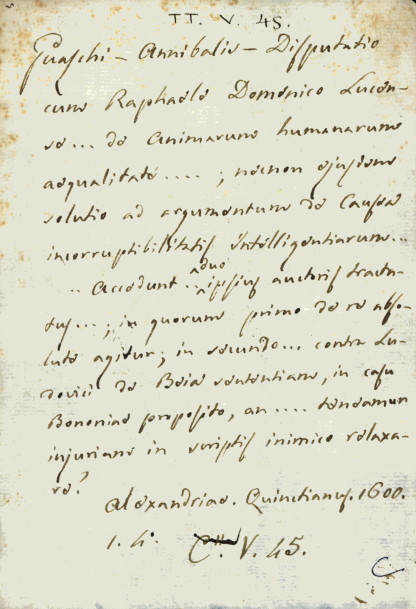 TT. V. 45.
Guaschi - Annibalis - Disputatio
cum Raphaele Domenico Lucen-
se... de animarum humanarum
aequalitate....; necnon ejusdem
solutio ad argumentum de Causa
incorruptibilitatis intelligentiarum...
.. Accedunt.. duo ipsius auctoris tracta-
tus...; in quorum primo de re abso-
lute agitur; in secundo... contra Lu-
dovici de Beia sententiam, in casu
Bononiae proposito, an .... tendamur
injuriam in scriptis inimico relaxa-
re?
Alexandriae. Quinctianus. 1600.
1. 4.° V. 45.